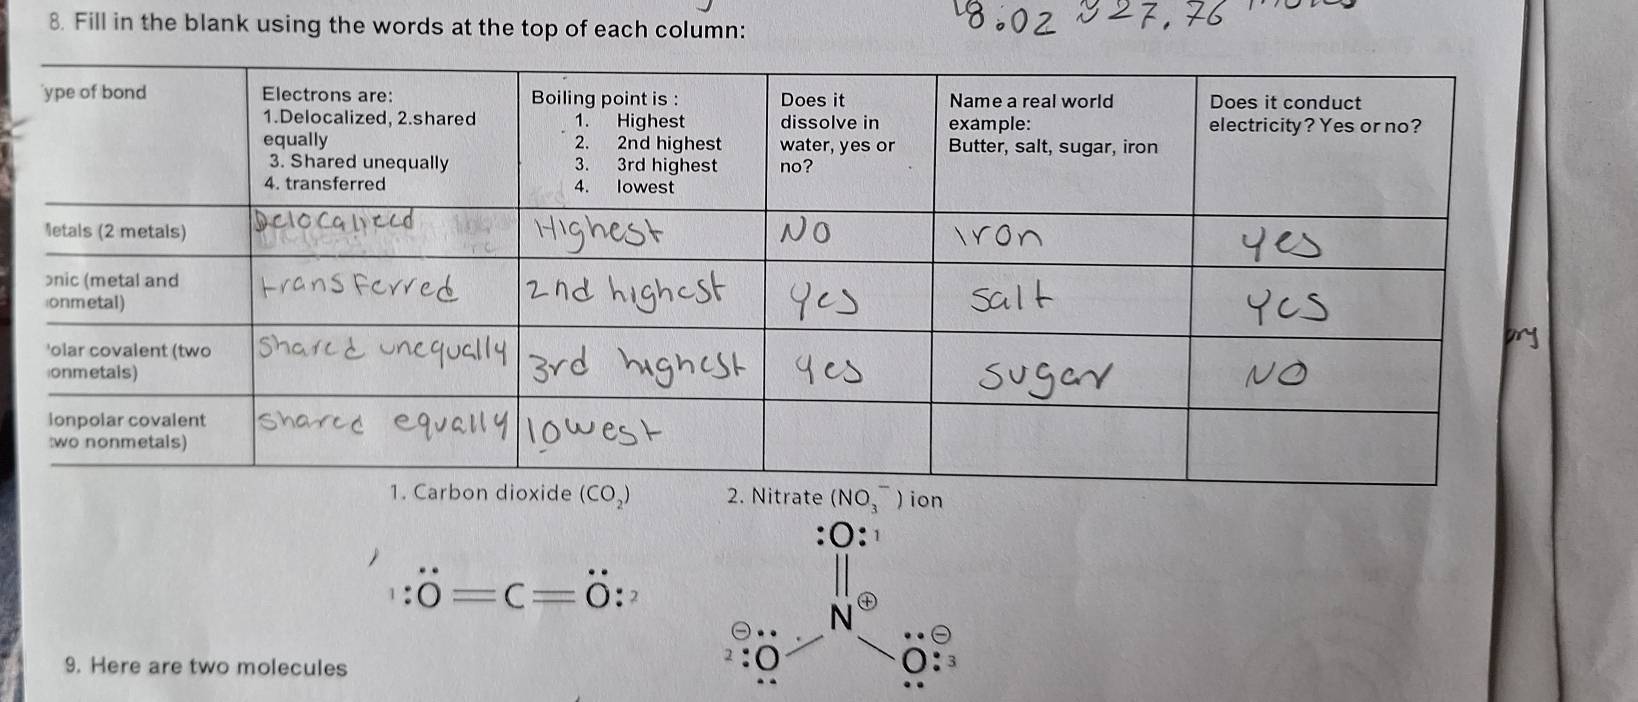 8. Fill in the blank using the words at the top of each column:
18.02 ≈ 27.76
ype of bond
Electrons are:
1.Delocalized, 2.shared
equally
3. Shared unequally
4. transferred
Boiling point is :
1. Highest
2. 2nd highest
3. 3rd highest
4. lowest
Does it
dissolve in
water, yes or
no?
Name a real world
example:
Butter, salt, sugar, iron
Does it conduct
electricity? Yes or no?
etals (2 metals)
Delocalized
Highest
NO
iron
yes
onic (metal and
onmetal)
transferred
2nd highest
yes
salt
yes
olar covalent (two
onmetals)
shared unequally
3rd highest
yes
sugar
NO
onpolar covalent
two nonmetals)
shared equally
lowest
1. Carbon dioxide (CO₂)
2. Nitrate (NO₃⁻) ion
:O: 1
1 :Ö=C=Ö: 2
N⊕
2 :O
O: 3
9. Here are two molecules